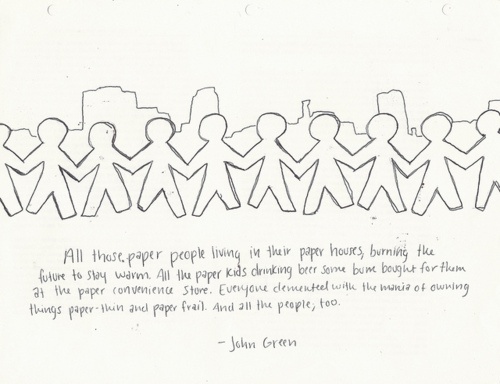 All those paper people living in their paper houses, burning the
future to stay warm. All the paper kids drinking beer some bum bought for them
at the paper convenience store. Everyone demented with the mania of owning
things paper-thin and paper frail. And all the people, too.
- John Green